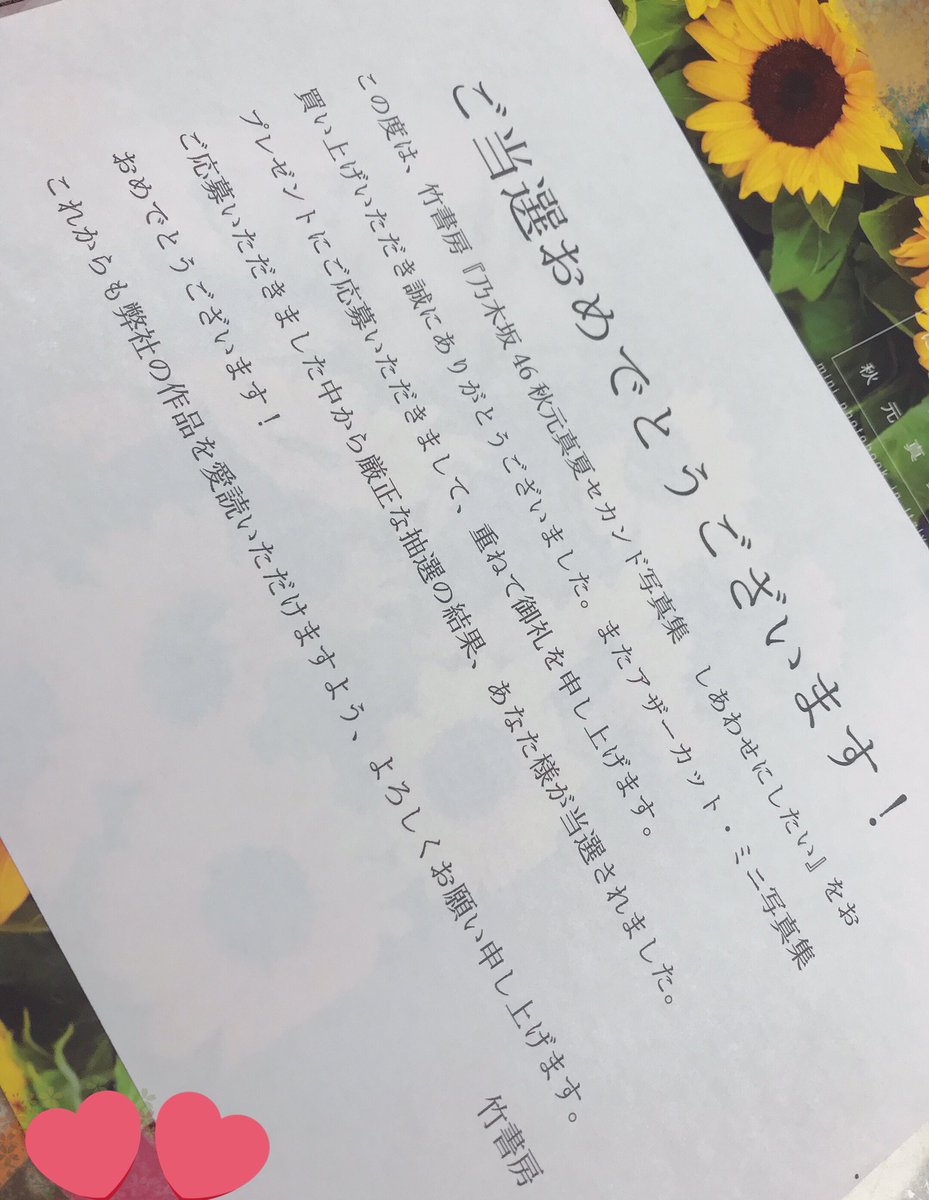 ご当選おめでとうございます！
この度は、竹書房『乃木坂46秋元真夏セカンド写真集　しあわせにしたい』をお
買い上げいただき誠にありがとうございました。またアザーカット・ミニ写真集
プレゼントにご応募いただきまして、重ねて御礼を申し上げます。
ご応募いただきました中から厳正な抽選の結果、あなた様が当選されました。
おめでとうございます！
これからも弊社の作品を愛読いただけますよう、よろしくお願い申し上げます。
竹書房
秋元真
mini photobook